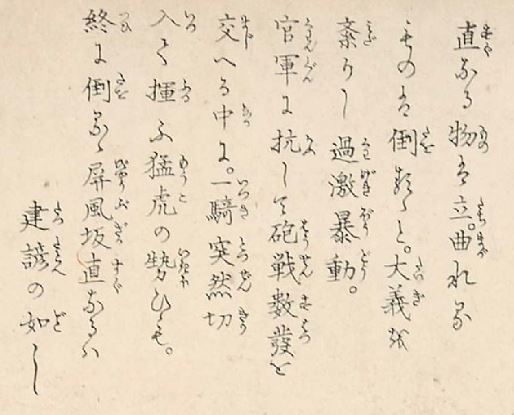 直なる物は立。曲れる
ものは倒るゝと。大義を
紊りし過激暴動。
官軍に抗して砲戦数發を
交へる中に。一騎突然切
入て揮ふ猛虎の勢ひも。
終に倒るゝ屏風坂直なるハ
建諺の如し